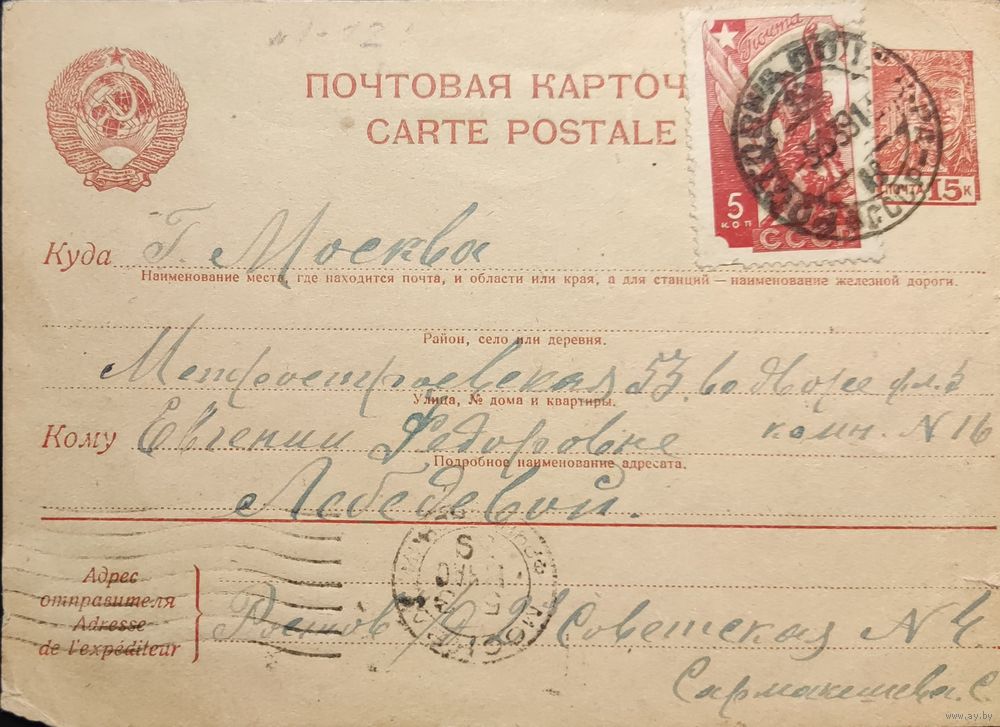 ПОЧТОВАЯ КАРТОЧ
CARTE POSTALE
Почта
5
КОП
СССР
ПОЧТА 15 К
5 3 39
Куда Г. Москва
Наименование места, где находится почта, и области или края, а для станций — наименование железной дороги.
Район, село или деревня.
Метростроевская 53. во дворе фл. 5
Улица, № дома и квартиры.
Кому Евгении Федоровне комн. N 16
Подробное наименование адресата.
Лебедевой.
Адрес
отправителя
Adresse
de l'expéditeur
Ростов н/Д Советская N 4
С.
МОСКВА
www.ay.by